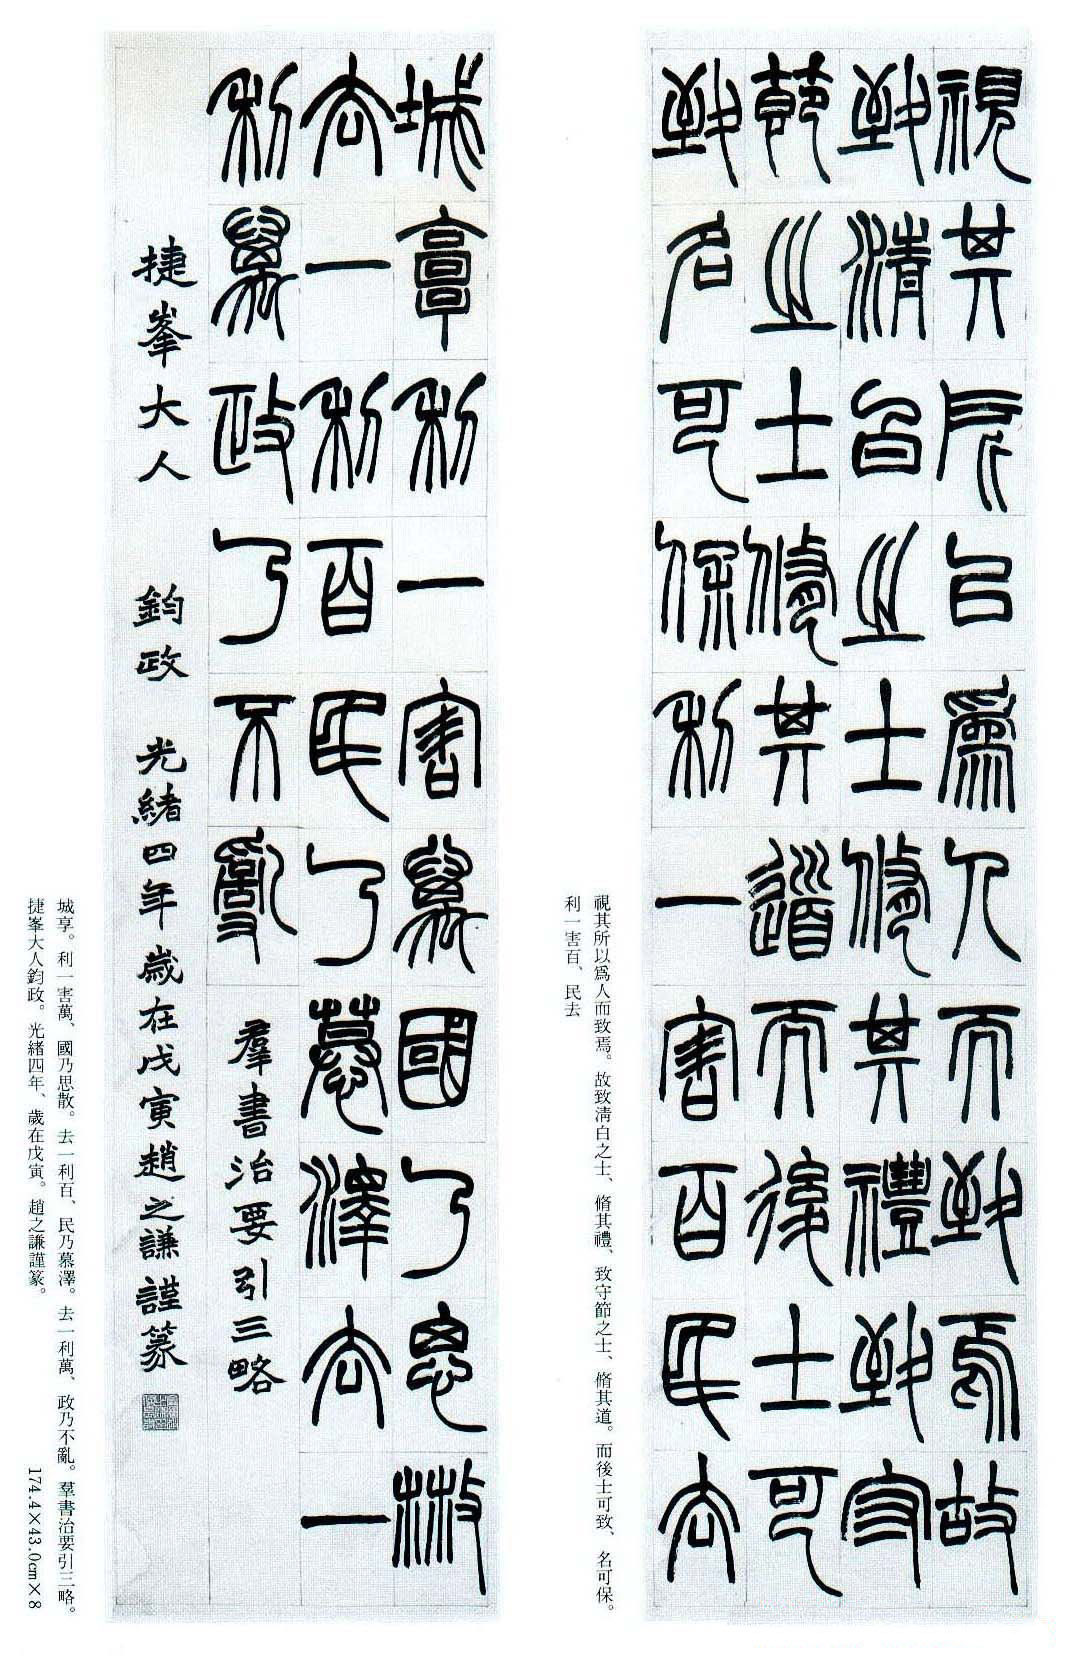 視其所以爲人而致焉故
致清白之士脩其禮致守
節之士脩其道而後士可
致名可保利一害百民去
視其所以爲人而致焉。故致淸白之士、脩其禮、致守節之士、脩其道。而後士可致、名可保。
利一害百、民去
城𩫏利一害萬國乃思散
去一利百民乃慕澤去一
利萬政乃不亂 羣書治要引三略
捷峯大人 鈞政 光緒四年歲在戊寅趙之謙謹篆
城享。利一害萬、國乃思散。去一利百、民乃慕澤。去一利萬、政乃不亂。羣書治要引三略。
捷峯大人鈞政。光緒四年、歲在戊寅。趙之謙謹篆。 174.4×43.0cm×8